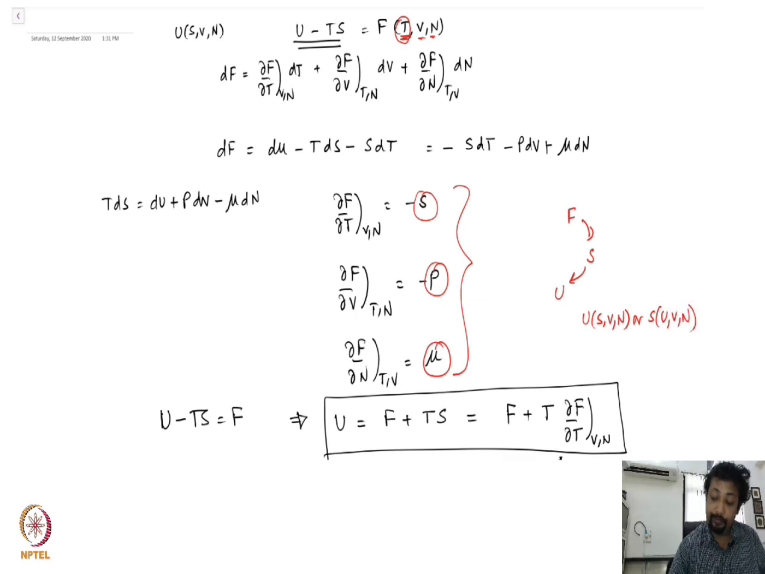 Saturday, 12 September 2020 1:31 PM
U(S,V,N) U - TS = F (T, V, N)
dF = ∂F/∂T)_{V,N} dT + ∂F/∂V)_{T,N} dV + ∂F/∂N)_{T,V} dN
dF = du - Tds - SdT = - SdT - PdV + μdN
Tds = dU + PdV - μdN
∂F/∂T)_{V,N} = -S
F
S
∂F/∂V)_{T,N} = -P
U
U(S,V,N) or S(U,V,N)
∂F/∂N)_{T,V} = μ
U - TS = F ⇒ U = F + TS = F + T ∂F/∂T)_{V,N}
NPTEL